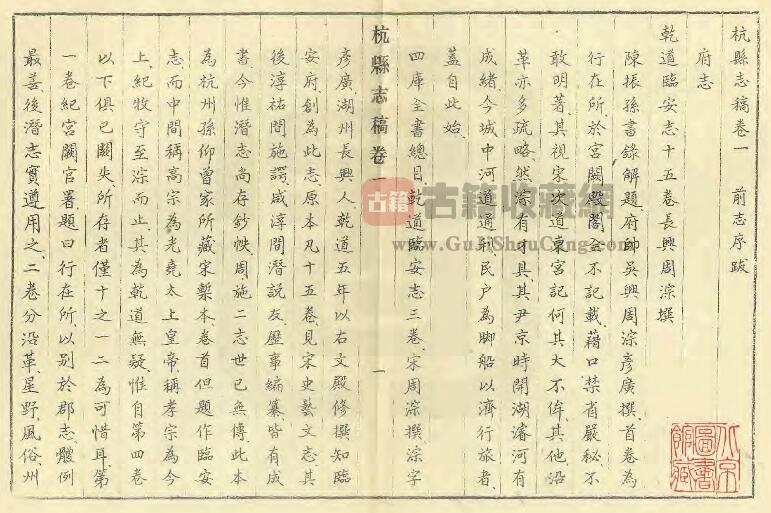 杭縣志稿卷一　前志序跋
府志
乾道臨安志十五卷長興周淙撰
陳振孫書錄解題府帥吳興周淙彥廣撰首卷為
行在所於宮闕殿閣全不記載藉口禁省嚴秘不
敢明著其視宋次道東宮記何其大不侔其他沿
革亦多疏略然淙有才具其尹京時開湖濬河有
成緒今城中河道通利民戶為脚船以濟行旅者
蓋自此始
四庫全書總目乾道臨安志三卷宋周淙撰淙字
杭縣志稿卷一
一
彥廣湖州長興人乾道五年以右文殿修撰知臨
安府創為此志原本凡十五卷見宋史藝文志其
後淳祐間施諤咸淳間潛說友歷事編纂皆有成
書今惟潛志尚存鈔帙周施二志世已無傳此本
為杭州孫仰曾家所藏宋槧本卷首但題作臨安
志而中間稱高宗為光堯太上皇帝稱孝宗為今
上紀牧守至淙而止其為乾道無疑惟自第四卷
以下俱已闕失所存者僅十之一二為可惜耳第
一卷紀宮闕官署題曰行在所以別於郡志體例
最善後潛志實遵用之二卷分沿革星野風俗州
古籍 古籍收藏網
www.GuJiShouCang.com
北京
圖書
館藏